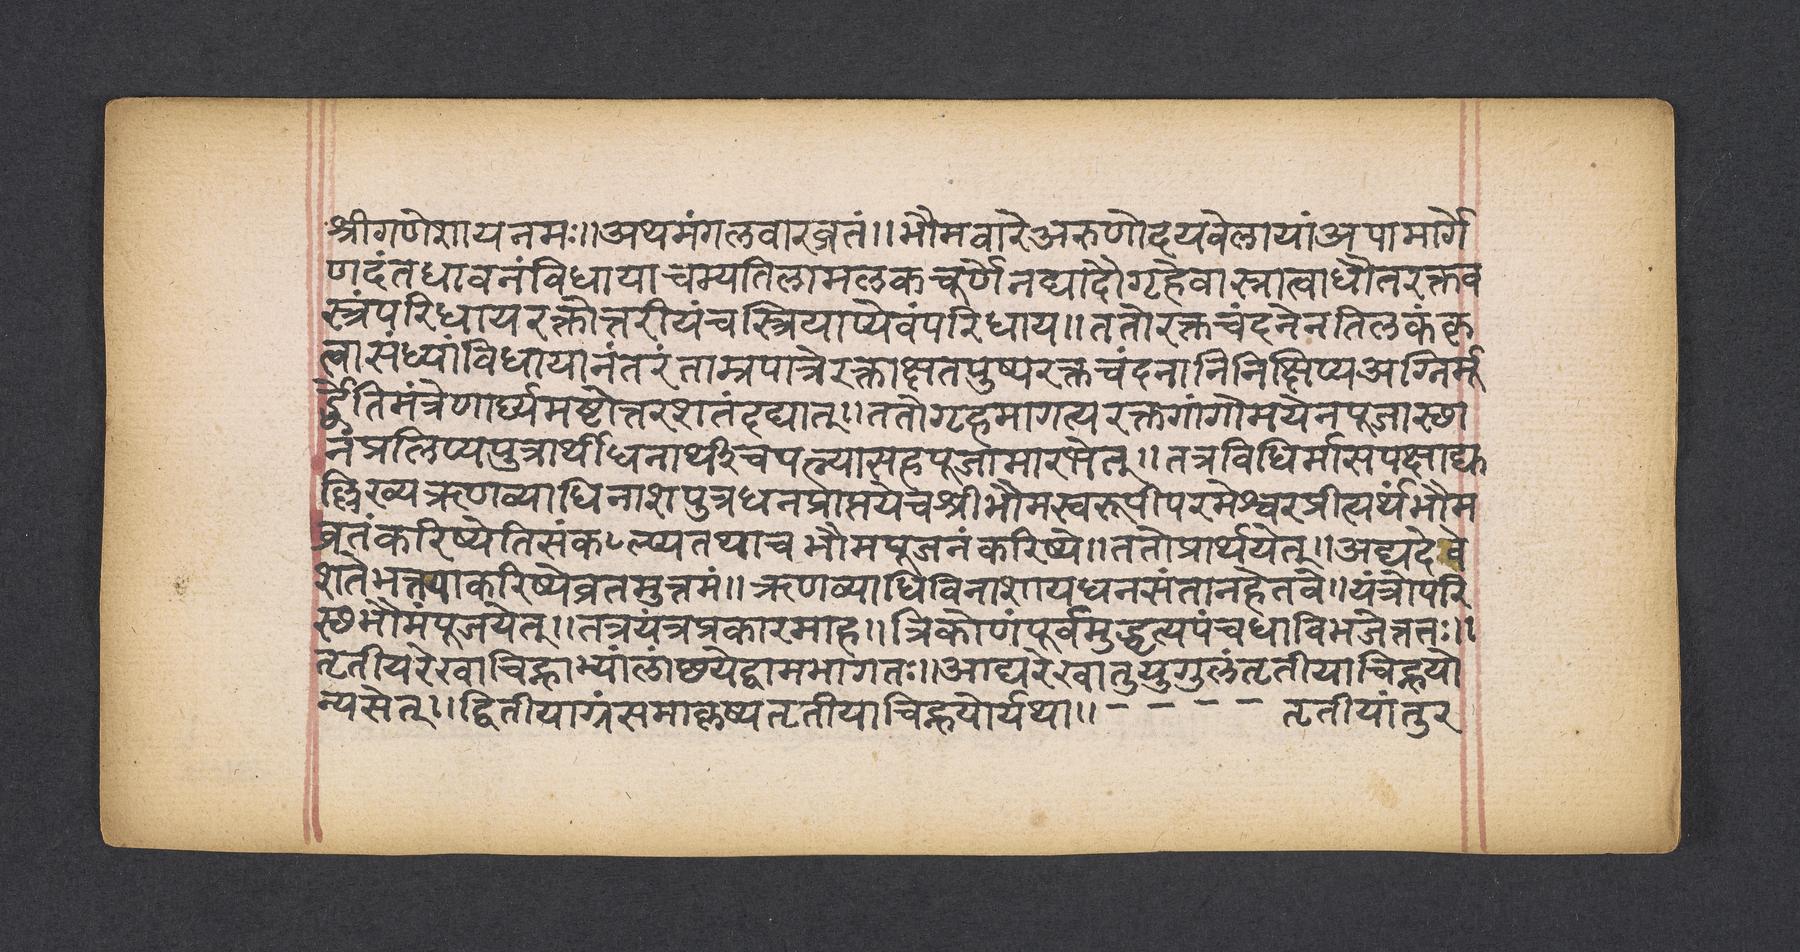 श्रीगणेशायनमः॥अथमंगलवारव्रतं॥भौमवारेअरुणोदयवेलायांअपामार्गे
णदंतधावनंविधायाचम्यतिलामलकचूर्णेननद्यादौगृहेवास्नात्वाधौतरक्तव
स्त्रंपरिधायरक्तोत्तरीयंचस्त्रियाप्येवंपरिधाय॥ततोरक्तचंदनेनतिलकंकृ
त्वासंध्यांविधायानंतरंताम्रपात्रेरक्ताक्षतपुष्परक्तचंदनानिनिक्षिप्यअग्निर्मू
र्द्धेतिमंत्रेणार्घ्यमष्टोत्तरशतंदद्यात्॥ततोगृहमागत्यरक्तगोगोमयेनपूजास्छा
नंप्रलिप्यपुत्रार्थीधनार्थीचपत्न्यासहपूजामारभेत्॥तत्रविधिर्मासपक्षाद्यु
ल्लिख्यऋणव्याधिनाशपुत्रधनप्राप्तयेचश्रीभौमस्वरूपीपरमेश्वरप्रीत्यर्थंभौम
व्रतंकरिष्येतिसंकल्प्यतथाचभौमपूजनंकरिष्ये॥ततोप्रार्थयेत्॥अद्यदेवे
शतेभक्त्याकरिष्येव्रतमुत्तमं॥ऋणव्याधिविनाशायधनसंतानहेतवे॥यंत्रोपरि
स्छभौमंपूजयेत्॥तत्रयंत्रप्रकारमाह॥त्रिकोणंपूर्वमुद्धृत्यपंचधाविभजेत्ततः॥
तृतीयरेखाचिह्नाभ्यांलांछयेद्वामभागतः॥आद्यरेखातुयुगुलंतृतीयाचिह्नयो
न्यसेत्॥द्वितीयाग्रंसमाक्लष्यतृतीयाचिह्नयोर्यथा॥- - - - तृतीयांतुर